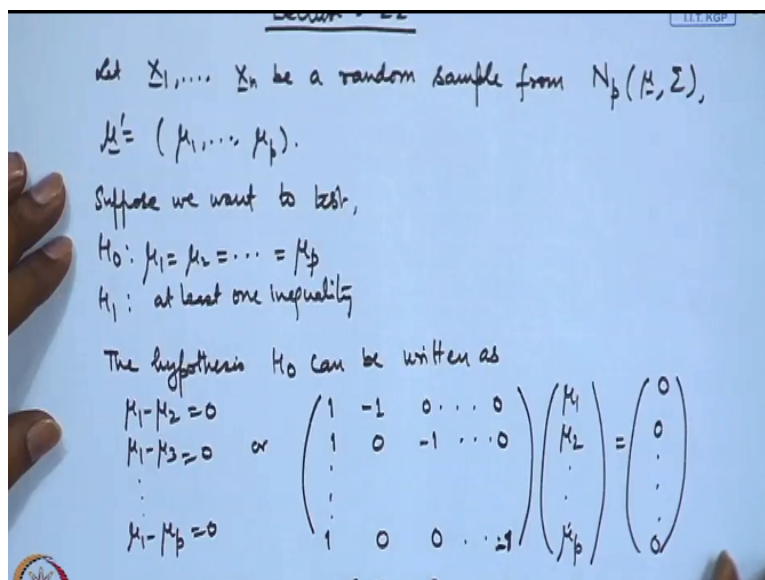 I.I.T. KGP
Let X̲₁, .... X̲ₙ be a random sample from Nₚ(μ̲, Σ),
μ̲' = (μ₁, .... μₚ).
Suppose we want to test,
H₀: μ₁ = μ₂ = ··· = μₚ
H₁: at least one inequality
The hypothesis H₀ can be written as
μ₁-μ₂ = 0 or ( 1 -1 0 ... 0 ) ( μ₁ ) = ( 0 )
μ₁-μ₃ = 0 ( 1 0 -1 ... 0 ) ( μ₂ ) ( 0 )
⋮ ⋮ ⋮ ⋮
μ₁-μₚ = 0 ( 1 0 0 .. -1 ) ( μₚ ) ( 0 )